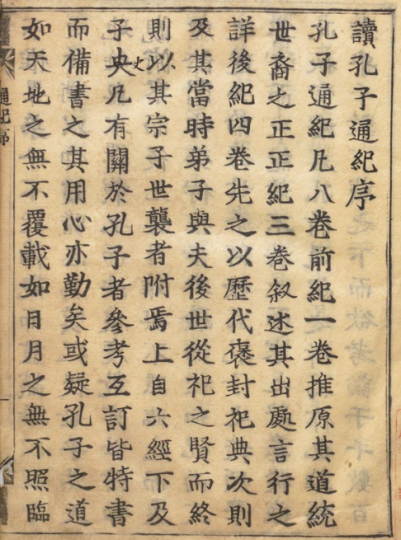 讀孔子通紀序
孔子通紀凡八卷前紀一卷推原其道統
世裔之正正紀三卷叙述其出處言行之
詳後紀四卷先之以歷代褒封祀典次則
及其當時弟子與夫後世從祀之賢而終
則以其宗子世襲者附焉上自六經下及
子史凡有關於孔子者參考互訂皆特書
而備書之其用心亦勤矣或疑孔子之道
如天地之無不覆載如日月之無不照臨
通紀序